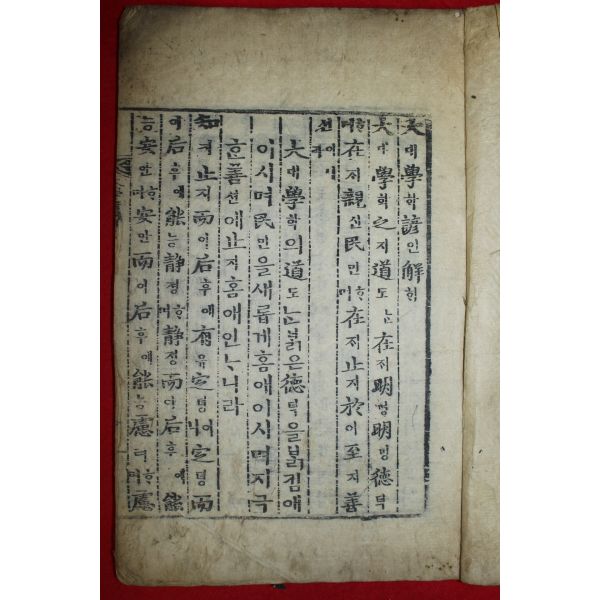 大대學학諺언解ᄒᆡ
大대學학之지道도ᄂᆞᆫ在ᄌᆡ明명明명德덕
ᄒᆞ며在ᄌᆡ親신民민ᄒᆞ며在ᄌᆡ止지於어至지善
션이니라
大대學학의道도ᄂᆞᆫ붉은德덕을붉킴애
이시며民민을새롭게홈애이시며지극
ᄒᆞᆫ善션애止지홈애인ᄂᆞ니라
知지止지而이后후에有유定뎡이니定뎡而
이后후에能능靜졍ᄒᆞ며靜졍而이后후에能
능安안ᄒᆞ며安안而이后후에能능慮려ᄒᆞ며慮